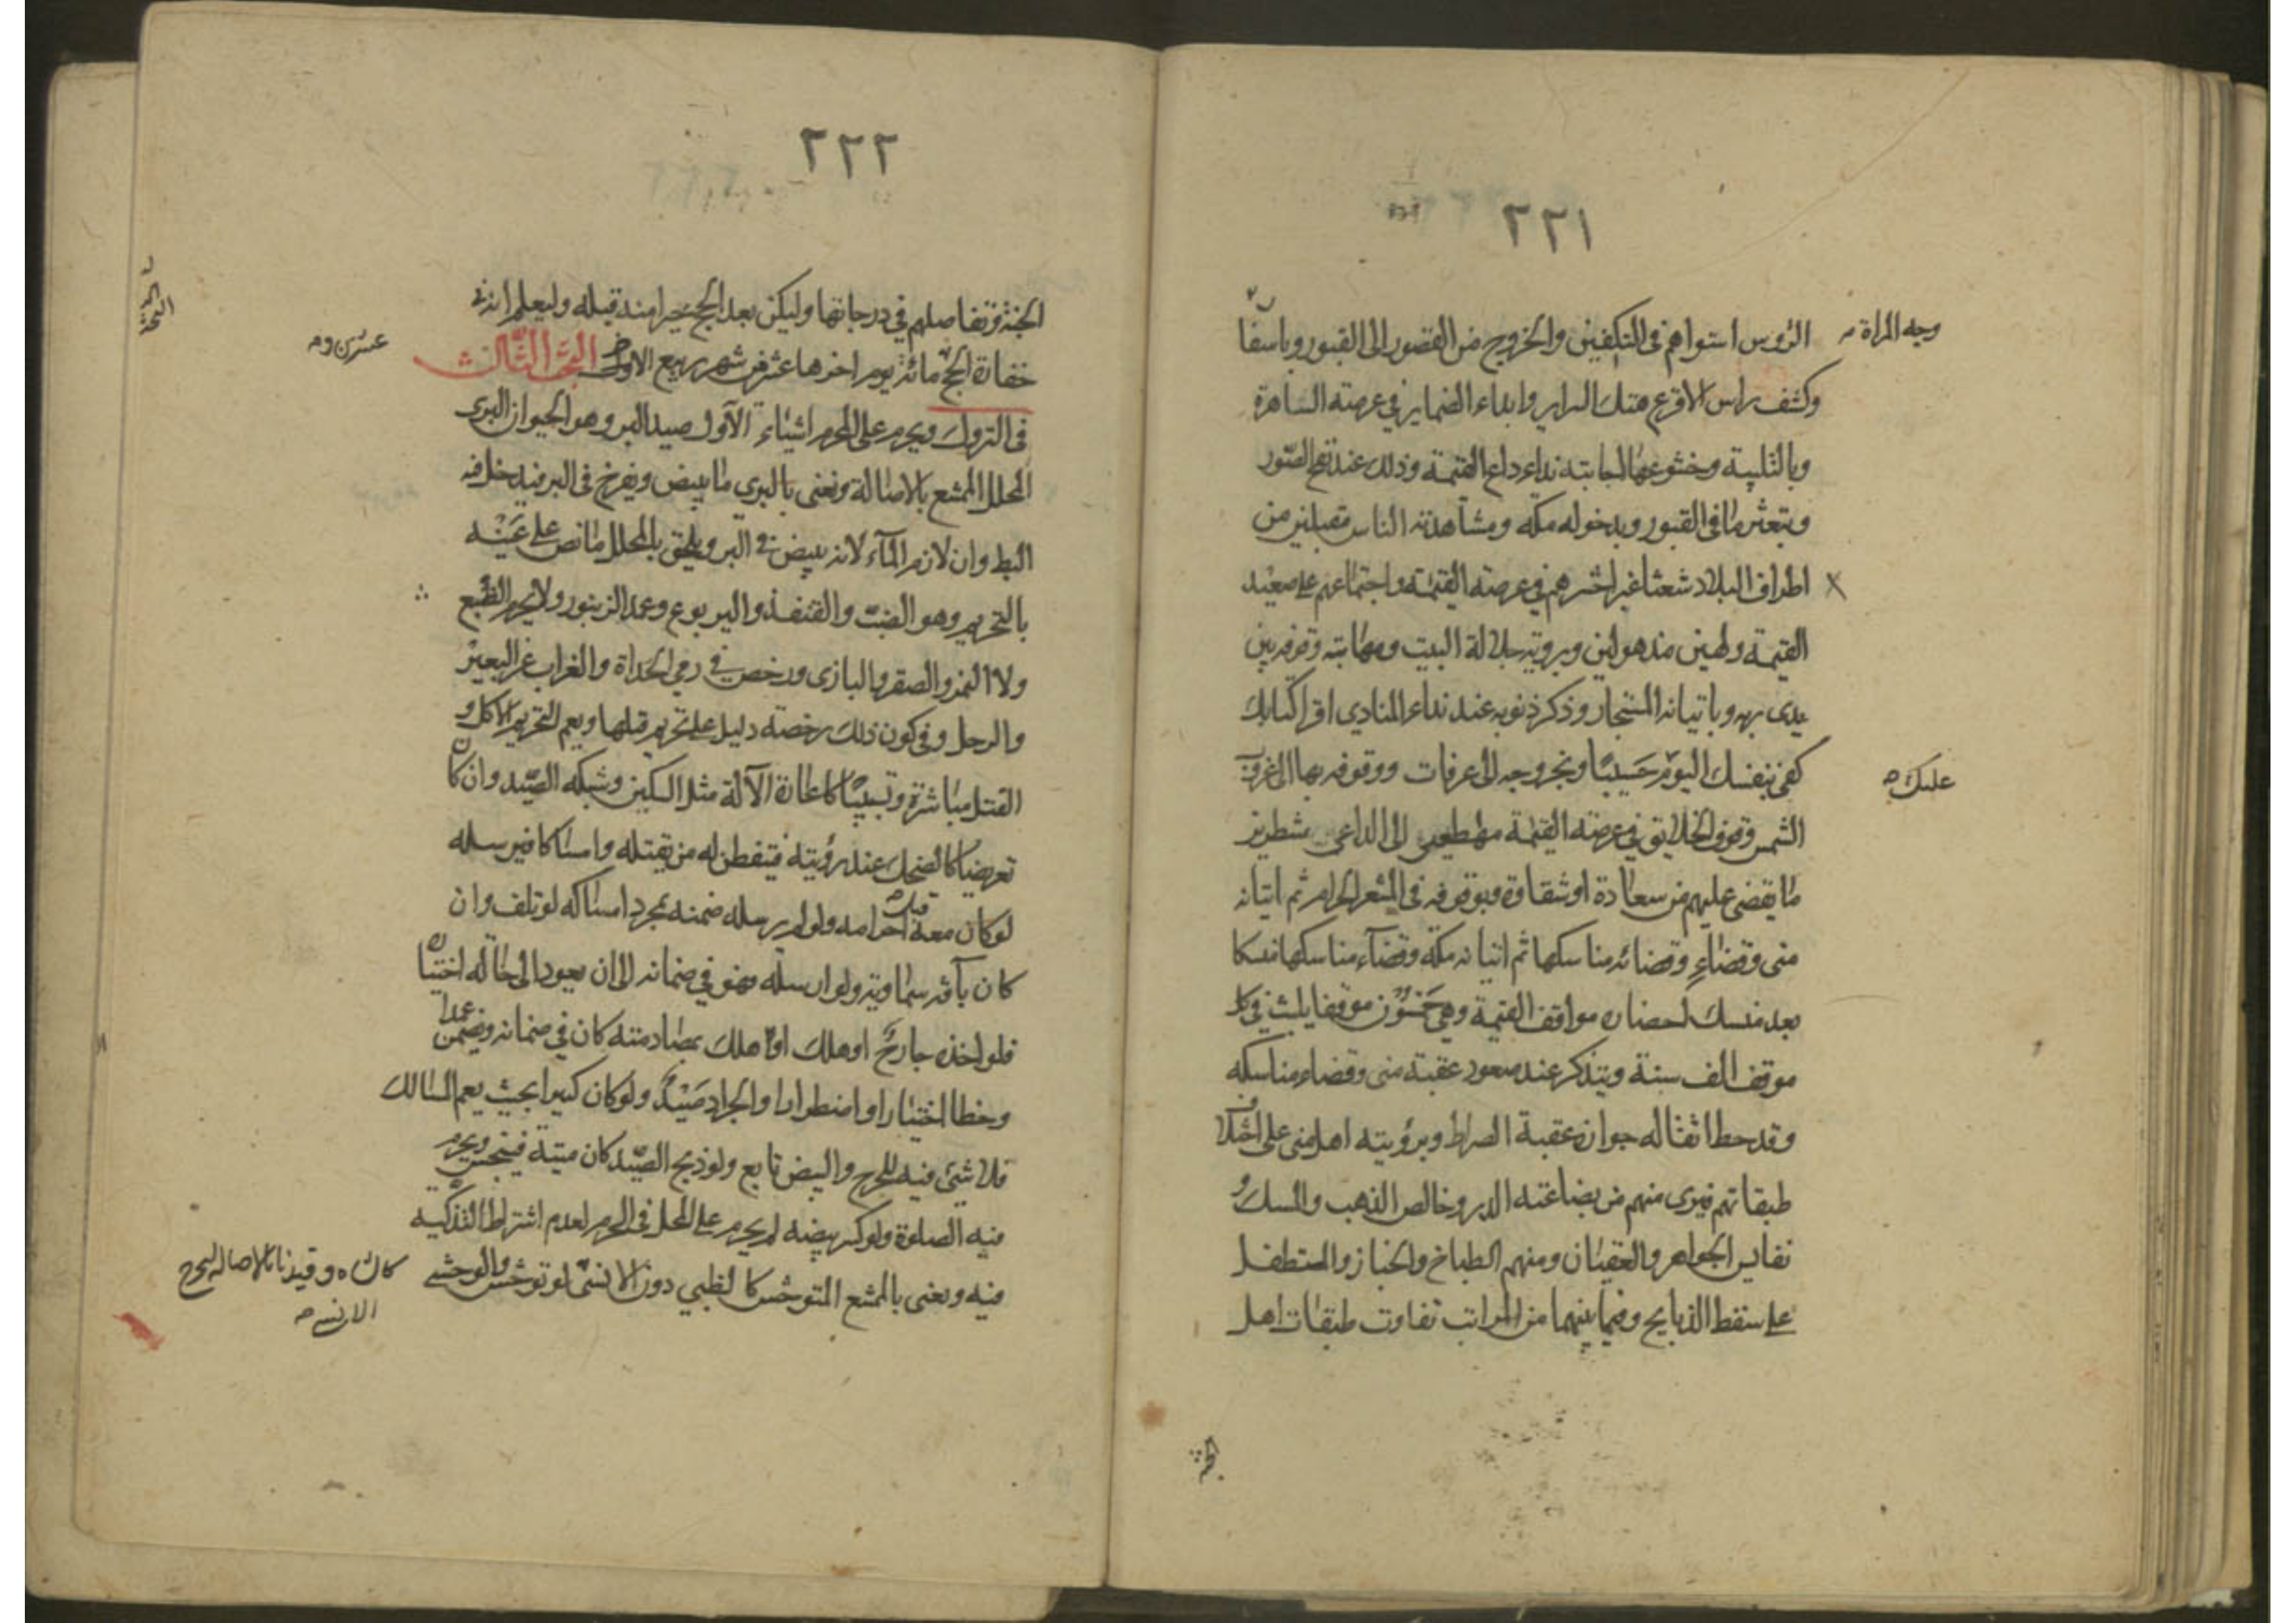 ٢٢١
وجه المراة
الرؤس استواهم فى التكفين والخروج من القصور الى القبور وباسفار
وكشف راس الاقرع هتك السراير وابداء الضماير في عرصة الساهرة
وبالتلبية وخشوعها اجابته نداء داع القيمة وذلك عند نفخ الصور
وبعثر ما في القبور وبدخوله مكة ومشاهدته الناس مقبلين من
اطراف البلاد شعثا غبرا حشرهم في عرصة القيمة واجتماعهم على صعيد
القيمة ولهين مذهولين وبرويته جلالة البيت ومهابته وقوفه بين
يدى ربه وباتيانه المستجار وذكر ذنوبه عند نداء المنادي اقرا كتابك
كفى بنفسك اليوم حسيبا وبخروجه الى عرفات ووقوفه بها الى غروب
عليك
الشمس وقوف الخلايق في عرصة القيمة مهطعين الى الداعى منتظرين
ما يقضى عليهم من سعادة او شقاوة وبوقوفه فى المشعر الحرام ثم اتيانه
منى وقضاء وقضائه مناسكها ثم اتيانه مكة وقضاء مناسكها منسكا
بعد منسك احضاره مواقف القيمة وهي خمسون موقفا يلبث في كل
موقف الف سنة ويتذكر عند صعود عقبة منى وقضاء مناسكه
وقد حط اثقاله جوازه عقبة الصراط وبرؤيته اهل منى على اختلاف
طبقاتهم فيرى منهم من بضاعته الدر وخالص الذهب والمسك و
نفايس الجواهر والعقيان ومنهم الطباخ والخباز والمتطفل
على سقط الذبايح وفيما بينهما من المراتب تفاوت طبقات اهل
٢٢٢
الجنة وتفاضلهم في درجاتها وليكن بعد الحج خيرا منه قبله وليعلم انه في
خفارة الحج مائة يوم اخرها عشر من شهر ربيع الاول البحث الثالث
عشرين وم
فى التروك ويحرم على المحرم اشياء الاول صيد البر وهو الحيوان البرى
المحلل الممتنع بالاصالة ونعنى بالبري ما يبيض ويفرخ فى البر فيدخل فيه
البط وان لازم الماء لانه يبيض في البر ويلحق بالمحلل ما نص على عينه
بالتحريم وهو الضب والقنفذ واليربوع وعمد الزنبور ولا يحرم الضبع
ولا النمر والصقر والبازى ورخص في رمي الحداة والغراب عن البعير
والرحل وفى كون ذلك رخصة دليل على تحريم قتلها ويعم التحريم الاكل و
القتل مباشرة وتسبيبا كاعارة الآلة مثل السكين وشبكة الصيد وان كان
تعريضا كالضحك عند رؤيته فيتفطن له من يقتله وامساكا فيرسله
لو كان معه قبل احرامه ولو لم يرسله ضمنه بمجرد امساكه لو تلف وان
كان بآفة سماوية ولو ارسله فهو في ضمانه الى ان يعود الى حاله اختيارا
فلو اخذه جارح او هلك او اهلك بمصادمته كان في ضمانه ويضمن عمدا
وخطا اختيارا او اضطرارا والجراد صيد ولو كان كثيرا بحيث يعم المسالك
فلا شيئ فيه للحرج والبيض تابع ولو ذبح الصيد كان ميتة فينجس ويحرم
فيه الصلوة ولو كسر بيضه لم يحرم على المحل فى الحرم لعدم اشتراط التذكية
فيه ونعنى بالممتنع المتوحش كالظبي دون الانسى لو توحش والوحشي
وقيدنا بالاصالة
الانسى